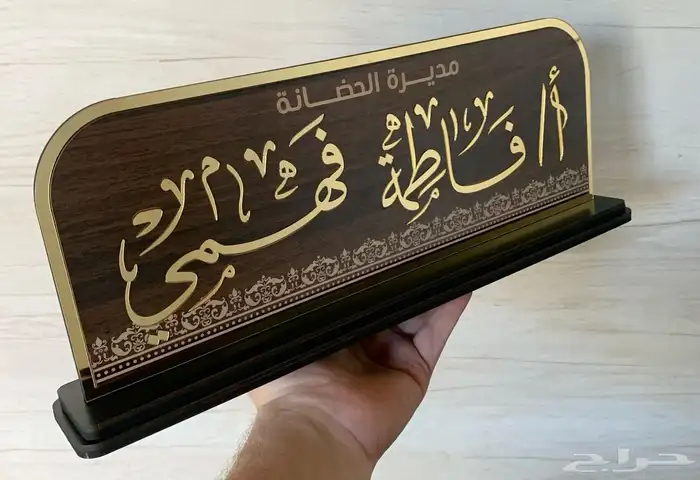 مديرة الحضانة
أ/ فاطمة فهمي
حراج